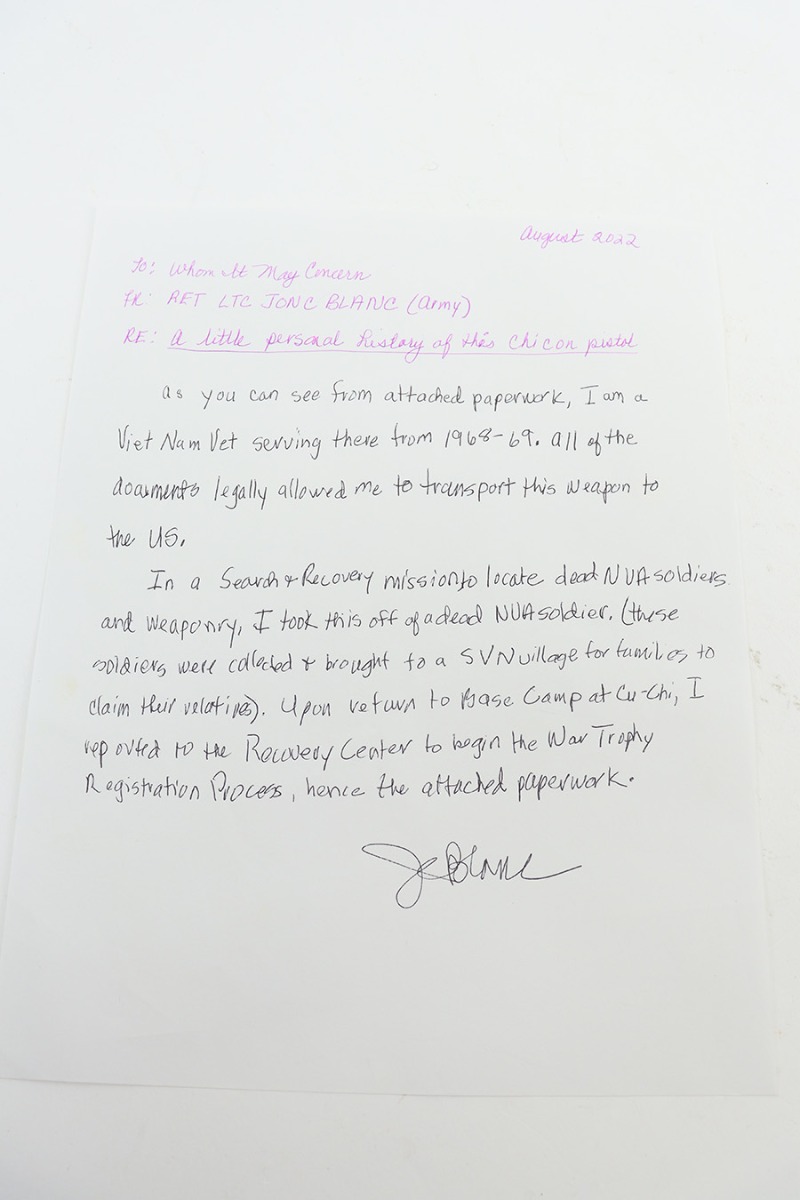 August 2022
To: Whom It May Concern
FR: RET LTC JON C BLANC (Army)
RE: A little personal history of this Chicon pistol
As you can see from attached paperwork, I am a
Viet Nam Vet serving there from 1968-69. All of the
documents legally allowed me to transport this weapon to
the US.
In a Search & Recovery mission to locate dead NVA soldiers
and weaponry, I took this off of a dead NVA soldier. (these
soldiers were collected & brought to a SVN village for families to
claim their relatives). Upon return to Base Camp at Cu-Chi, I
reported to the Recovery Center to begin the War Trophy
Registration Process, hence the attached paperwork.
JCBlanc